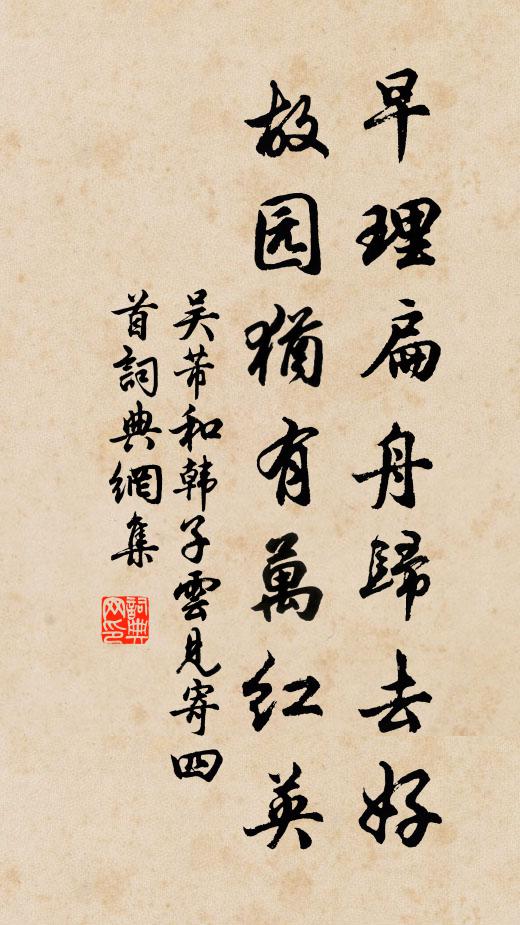 早理扁舟歸去好
故园猶有萬红英
吴芾和韩子雲見寄四
首詞典網集
詞典网印